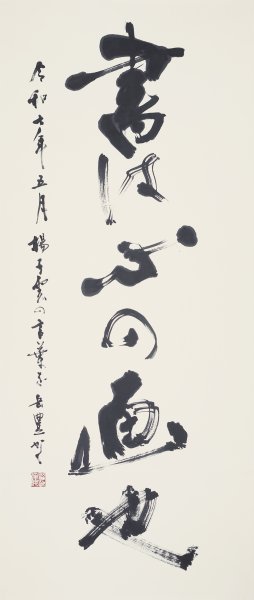 書は心の画也
令和七年五月 楊子雲の言葉 岳豊書